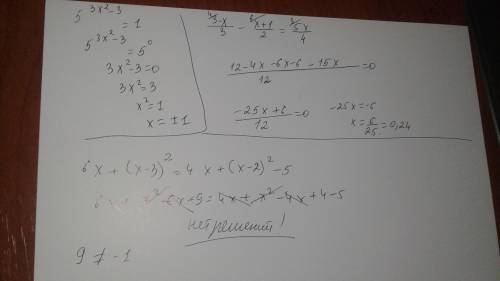 5^(3x²-3) = 1
5^(3x²-3) = 5⁰
3x²-3=0
3x²=3
x²=1
x = ±1
(3-x)/3 - (x+1)/2 = 5x/4
(12-4x-6x-6-15x)/12 =0
(-25x+6)/12 =0
-25x=-6
x=6/25=0,24
6x+(x-3)²=4x+(x-2)²-5
6x+x²-6x+9=4x+x²-4x+4-5
нет решений!
9 ≠ -1